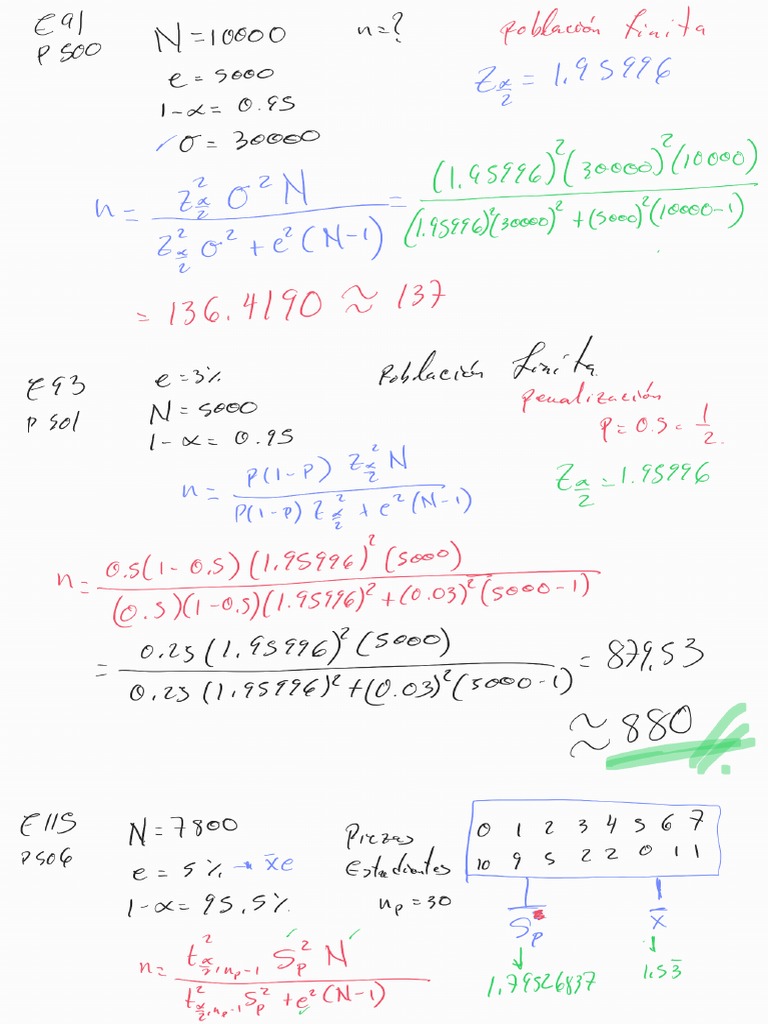 E91
P 500
N=10000
n=?
población finita
e = 5000
Z_{α/2} = 1.95996
1-α = 0.95
✓σ = 30000
n = \frac{Z²_{α/2} σ² N}{Z²_{α/2} σ² + e² (N-1)} = \frac{(1.95996)² (30000)² (10000)}{(1.95996)² (30000)² + (5000)² (10000-1)}
= 136.4190 ≈ 137
E93
P 501
e = 3%
Población finita
N = 5000
penalización
1-α = 0.95
P = 0.5 = \frac{1}{2}.
n = \frac{P(1-P) Z²_{α/2} N}{P(1-P) Z²_{α/2} + e² (N-1)}
Z_{α/2} = 1.95996
n = \frac{0.5(1-0.5) (1.95996)² (5000)}{(0.5)(1-0.5)(1.95996)² + (0.03)² (5000-1)}
= \frac{0.25 (1.95996)² (5000)}{0.25 (1.95996)² + (0.03)² (5000-1)} = 879.53
≈ 880
E115
P506
N = 7800
e = 5% → x̄e
1-α = 95.5%
Piezas 0 1 2 3 4 5 6 7
Estudiantes 10 9 5 2 2 0 1 1
n_p = 30
S_p
x̄
1.79526837
1.53̄
n = \frac{t²_{α/2, n_p-1} S_p² N}{t²_{α/2, n_p-1} S_p² + e² (N-1)}